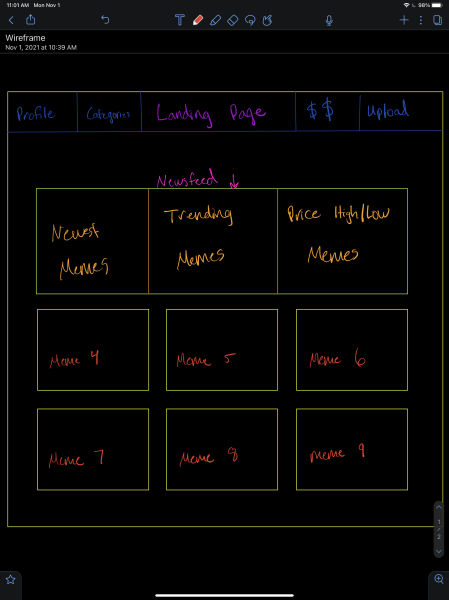 11:01 AM Mon Nov 1
98%
Wireframe
Nov 1, 2021 at 10:39 AM
Profile
Categories
Landing Page
$$
Upload
Newsfeed ↓
Newest
Memes
Trending
Memes
Price High/Low
Memes
Meme 4
Meme 5
Meme 6
Meme 7
Meme 8
Meme 9
1
/
2